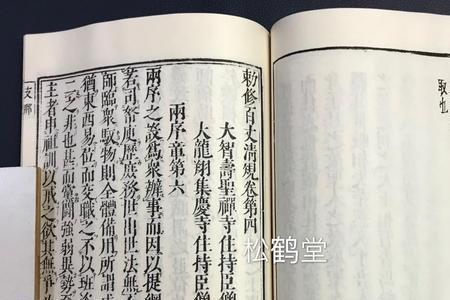 取也
勅修百丈清規卷第四
大智壽聖禪寺住持臣僧
大龍翔集慶寺住持臣僧
兩序章第六
兩序之設為衆辦事而因以提綱
若司帑庾歷庶務世出世法無
師臨衆馭物則全體備用所謂
猶東西易位而交職之不以班資
二之非也甚而黨鬪強弱異勢
主者申祖訓以戒之欲其無爭
支那
松鹤堂